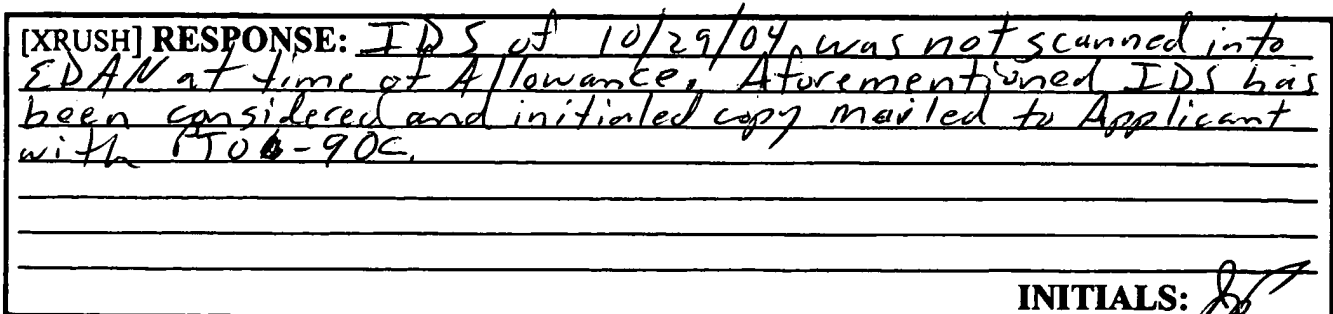 [XRUSH] RESPONSE: IDS of 10/29/04 was not scanned into
EDAN at time of Allowance. Aforementioned IDS has
been considered and initialed copy mailed to Applicant
with PTO-90C.
INITIALS: